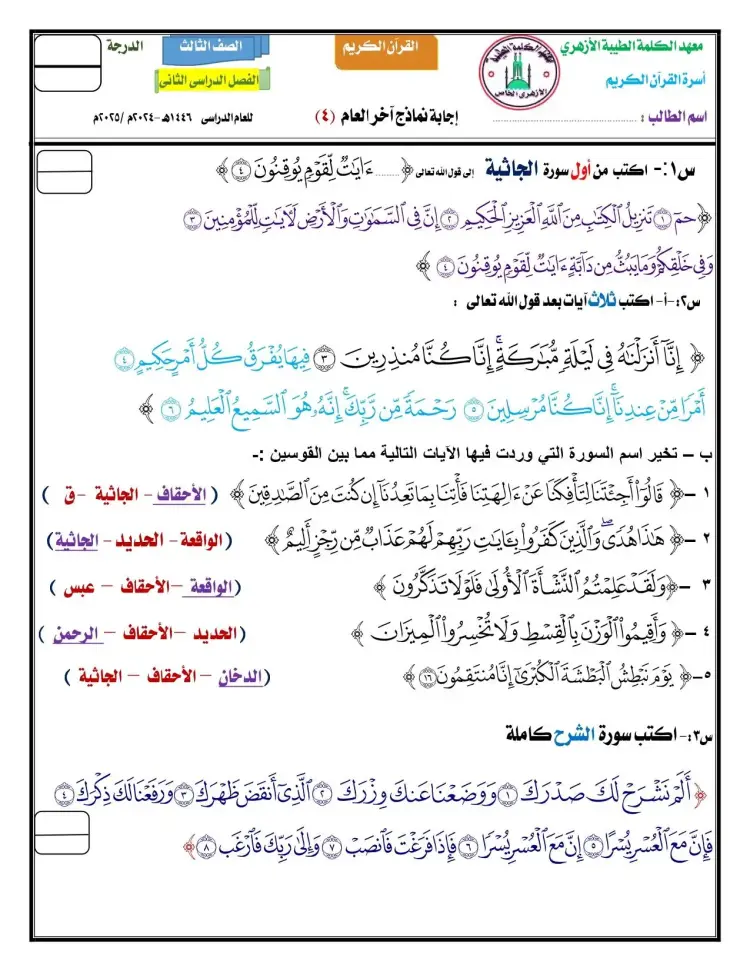 معهد الكلمة الطيبة الأزهري
القرآن الكريم
الصف الثالث
الدرجة
أسرة القرآن الكريم
الفصل الدراسى الثانى
اسم الطالب : ........................
إجابة نماذج آخر العام (٤)
للعام الدراسى ١٤٤٦هـ -٢٠٢٤م /٢٠٢٥م
س١:- اكتب من أول سورة الجاثية إلى قول الله تعالى ﴿ ........ ءَايَٰتٌ لِّقَوْمٍ يُوقِنُونَ ٤ ﴾
﴿حمٓ ١ تَنزِيلُ ٱلْكِتَٰبِ مِنَ ٱللَّهِ ٱلْعَزِيزِ ٱلْحَكِيمِ ٢ إِنَّ فِى ٱلسَّمَٰوَٰتِ وَٱلْأَرْضِ لَءَايَٰتٍ لِّلْمُؤْمِنِينَ ٣
وَفِى خَلْقِكُمْ وَمَا يَبُثُّ مِن دَآبَّةٍ ءَايَٰتٌ لِّقَوْمٍ يُوقِنُونَ ٤ ﴾
س٢:-أ- اكتب ثلاث آيات بعد قول الله تعالى :
﴿ إِنَّآ أَنزَلْنَٰهُ فِى لَيْلَةٍ مُّبَٰرَكَةٍ ۚ إِنَّا كُنَّا مُنذِرِينَ ٣ فِيهَا يُفْرَقُ كُلُّ أَمْرٍ حَكِيمٍ ٤
أَمْرًا مِّنْ عِندِنَآ ۚ إِنَّا كُنَّا مُرْسِلِينَ ٥ رَحْمَةً مِّن رَّبِّكَ ۚ إِنَّهُۥ هُوَ ٱلسَّمِيعُ ٱلْعَلِيمُ ٦ ﴾
ب – تخير اسم السورة التي وردت فيها الآيات التالية مما بين القوسين :-
١ -﴿ قَالُوٓا۟ أَجِئْتَنَا لِتَأْفِكَنَا عَنْ ءَالِهَتِنَا فَأْتِنَا بِمَا تَعِدُنَآ إِن كُنتَ مِنَ ٱلصَّٰدِقِينَ ﴾ ( الأحقاف - الجاثية -ق )
٢ -﴿ هَٰذَا هُدًى ۖ وَٱلَّذِينَ كَفَرُوا۟ بِـَٔايَٰتِ رَبِّهِمْ لَهُمْ عَذَابٌ مِّن رِّجْزٍ أَلِيمٌ ﴾ (الواقعة- الحديد- الجاثية)
٣ -﴿وَلَقَدْ عَلِمْتُمُ ٱلنَّشْأَةَ ٱلْأُولَىٰ فَلَوْلَا تَذَكَّرُونَ ﴾ (الواقعة –الأحقاف – عبس )
٤ -﴿ وَأَقِيمُوا۟ ٱلْوَزْنَ بِٱلْقِسْطِ وَلَا تُخْسِرُوا۟ ٱلْمِيزَانَ ﴾ (الحديد –الأحقاف – الرحمن )
٥-﴿ يَوْمَ نَبْطِشُ ٱلْبَطْشَةَ ٱلْكُبْرَىٰٓ إِنَّا مُنتَقِمُونَ ١٦ ﴾ (الدخان – الأحقاف – الجاثية )
س٣:- اكتب سورة الشرح كاملة
﴿ أَلَمْ نَشْرَحْ لَكَ صَدْرَكَ ١ وَوَضَعْنَا عَنكَ وِزْرَكَ ٢ ٱلَّذِىٓ أَنقَضَ ظَهْرَكَ ٣ وَرَفَعْنَا لَكَ ذِكْرَكَ ٤
فَإِنَّ مَعَ ٱلْعُسْرِ يُسْرًا ٥ إِنَّ مَعَ ٱلْعُسْرِ يُسْرًا ٦ فَإِذَا فَرَغْتَ فَٱنصَبْ ٧ وَإِلَىٰ رَبِّكَ فَٱرْغَب ٨ ﴾